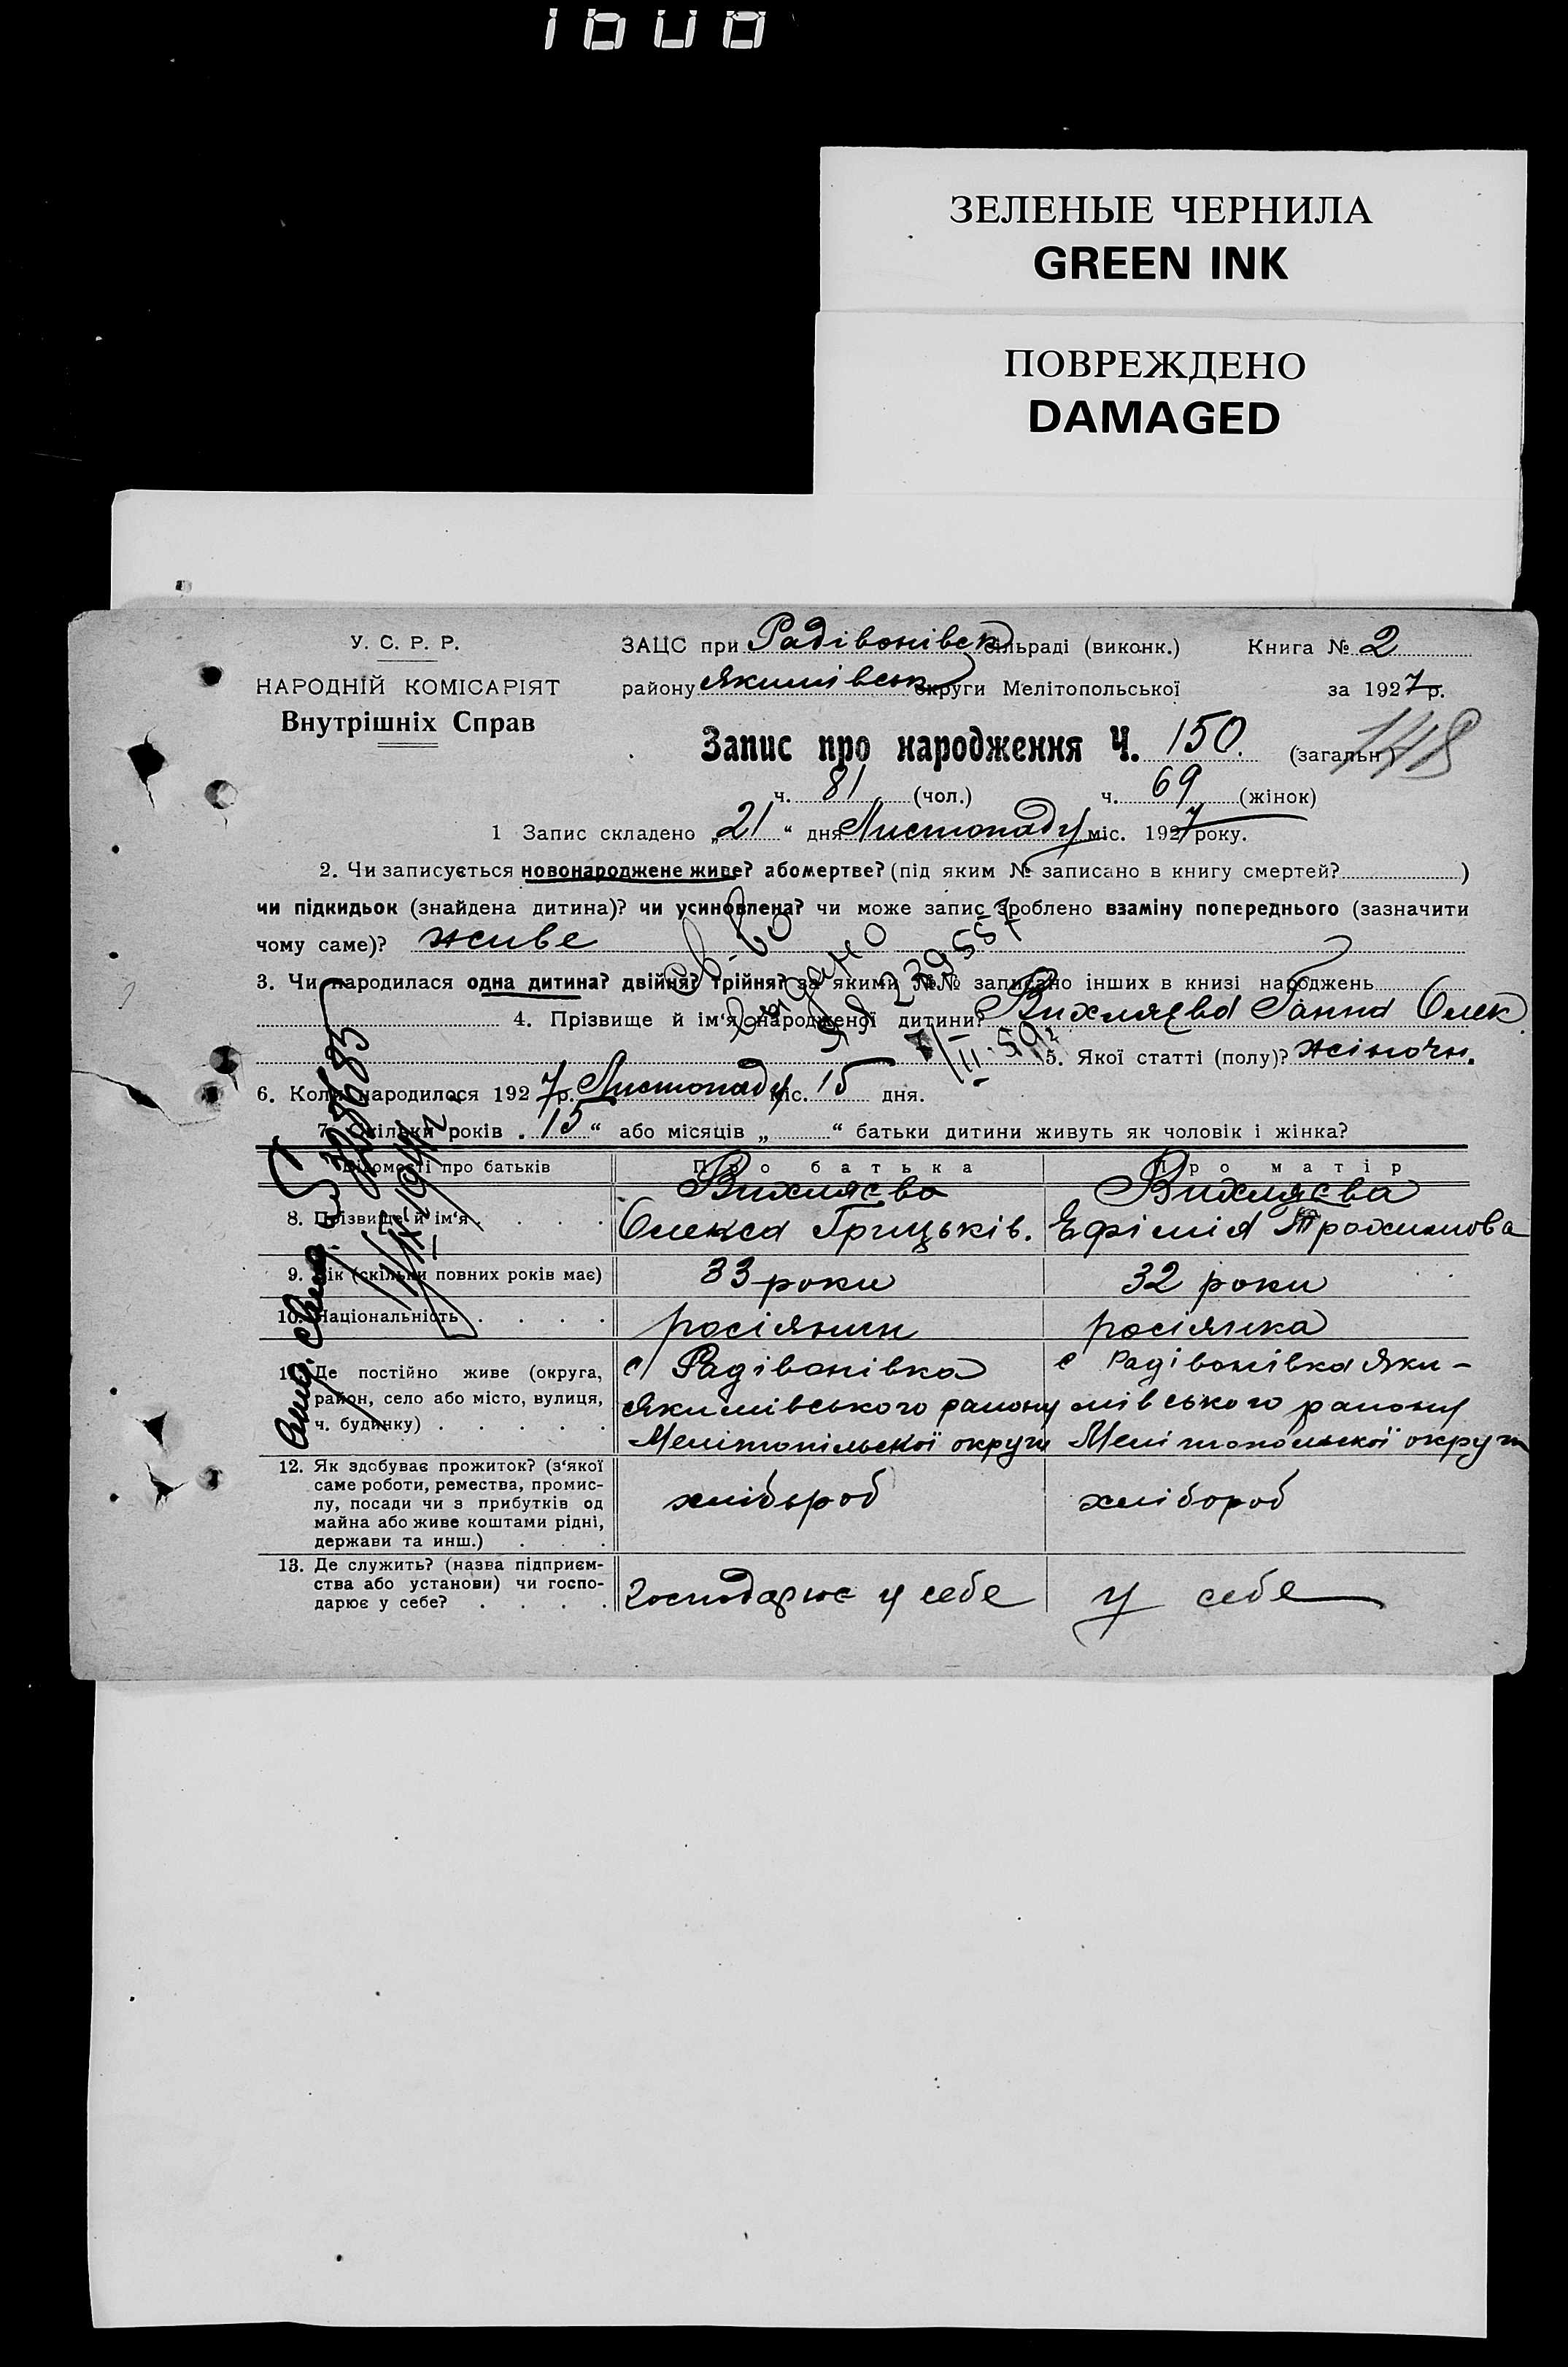 1600
ЗЕЛЕНЫЕ ЧЕРНИЛА
GREEN INK
ПОВРЕЖДЕНО
DAMAGED
У. С. Р. Р.
НАРОДНІЙ КОМІСАРІЯТ
Внутрішніх Справ
ЗАЦС при Радівонівськ сільраді (виконк.) Книга № 2
району Якимівськ округи Мелітопольської за 1927 р.
Запис про народження Ч. 150. (загальн.) 148
ч. 81 (чол.) ч. 69 (жінок)
1 Запис складено „21“ дня Листопаду міс. 1927 року.
2. Чи записується новонароджене живе? або мертве? (під яким № записано в книгу смертей? )
чи підкидьок (знайдена дитина)? чи усиновлена? чи може запис зроблено взаміну попереднього (зазначити
чому саме)? живе
3. Чи народилася одна дитина? двійня? трійня? за якими №№ записано інших в книзі народжень
4. Прізвище й ім'я народженої дитини? Вихляєва Ганна Олек
5. Якої статті (полу)? жіночи.
6. Коли народилося 1927 р. Листопаду міс. 15 дня.
7. Скільки років „15“ або місяців „ “ батьки дитини живуть як чоловік і жінка?
Відомості про батьків Про батька Про матір
8. Прізвище й ім'я Вихляєва Олекса Грицьків. Вихляєва Ефімія Трохимова
9. Вік (скільки повних років має) 33 роки 32 роки
10. Національність росіянин росіянка
11. Де постійно живе (округа, район, село або місто, вулиця, ч. будинку)
с Радівонівка Якимівського району Мелітопільської округи
с Радівонівка Якимівського району Мелітопольської округи
12. Як здобуває прожиток? (з'якої саме роботи, ремества, промислу, посади чи з прибутків од майна або живе коштами рідні, держави та инш.)
хлібороб хлібороб
13. Де служить? (назва підприємства або установи) чи господарює у себе?
господарює у себе у себе
Св-во
выдано
229557